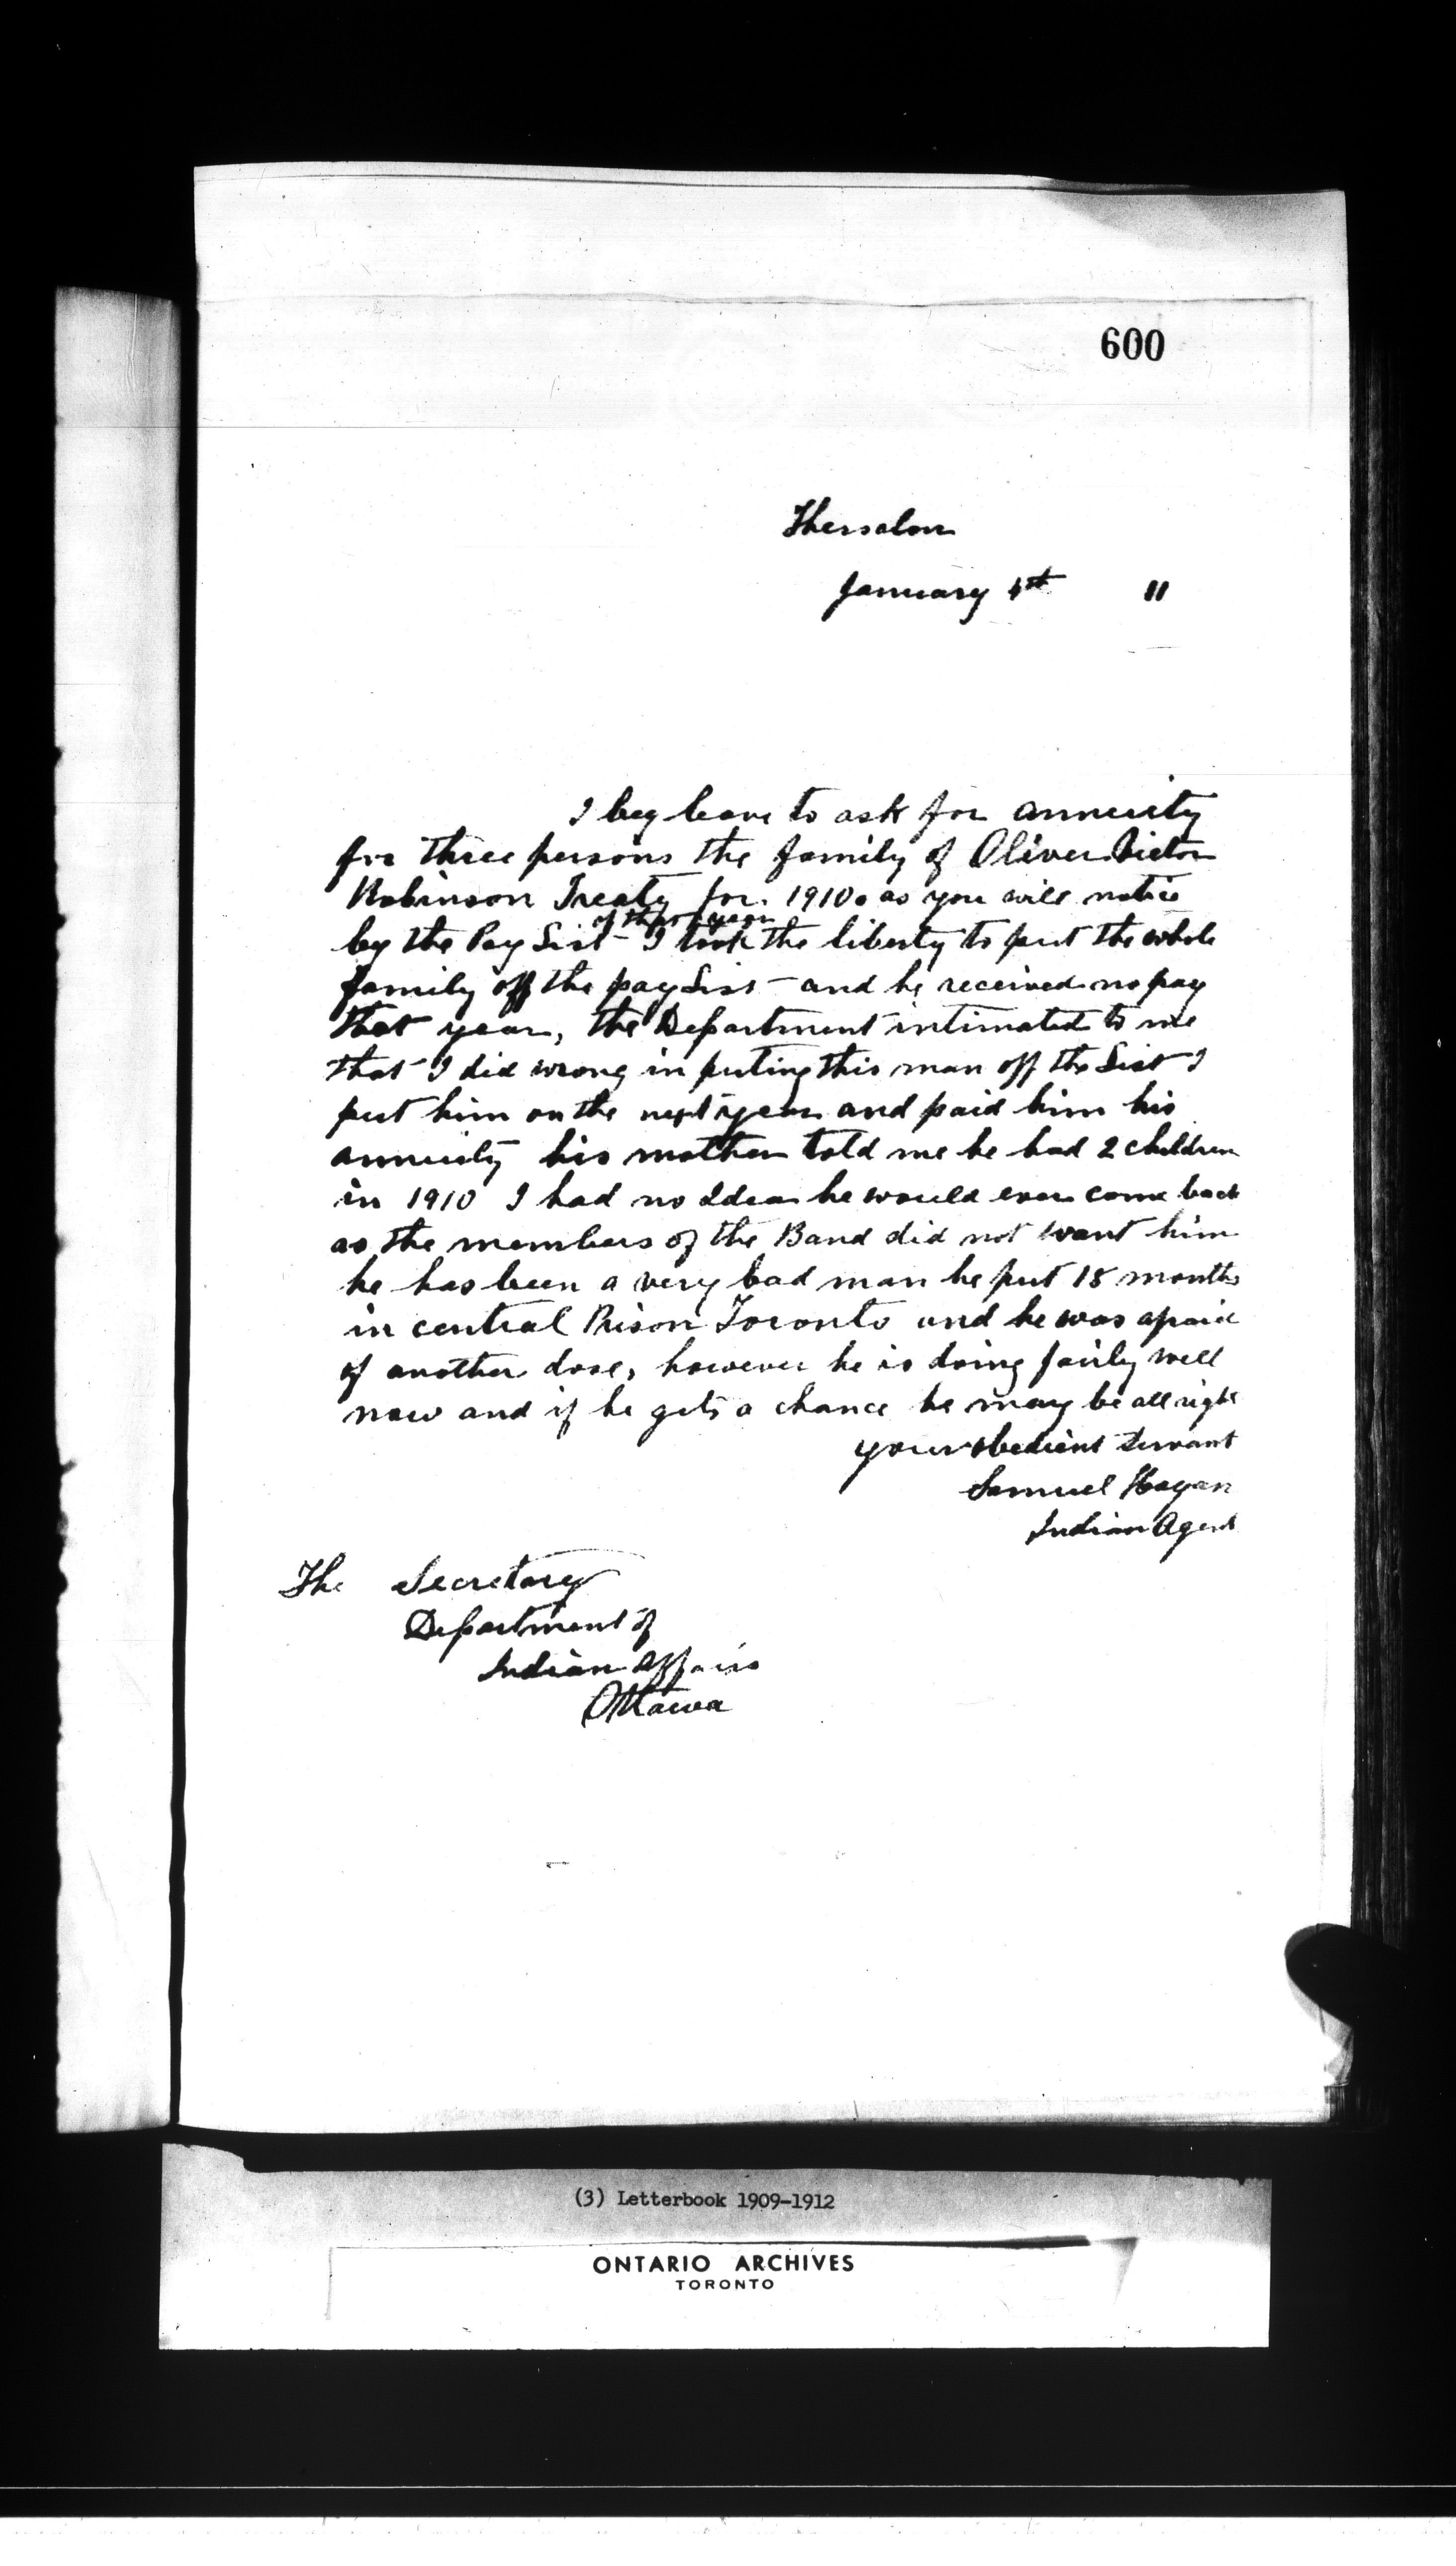 600
Thessalon
January 4th 11
I beg leave to ask for annuity
for three persons the family of Oliver Victor
Robinson Treaty for 1910. as you will notice
of that year
by the Pay List - I took the liberty to put the whole
family off the pay List - and he received no pay
that year, the Department intimated to me
that I did wrong in puting this man off the List I
put him on the next year and paid him his
annuity his mother told me he had 2 children
in 1910 I had no Idea he would ever come back
as the members of the Band did not want him
he has been a very bad man he put 18 months
in central Prison Toronto and he was afraid
of another dose, however he is doing fairly well
now and if he gets a chance he may be all right
your obedient servant
Samuel Hagan
Indian Agent
The Secretary
Department of
Indian Affairs
Ottawa
(3) Letterbook 1909-1912
ONTARIO ARCHIVES
TORONTO